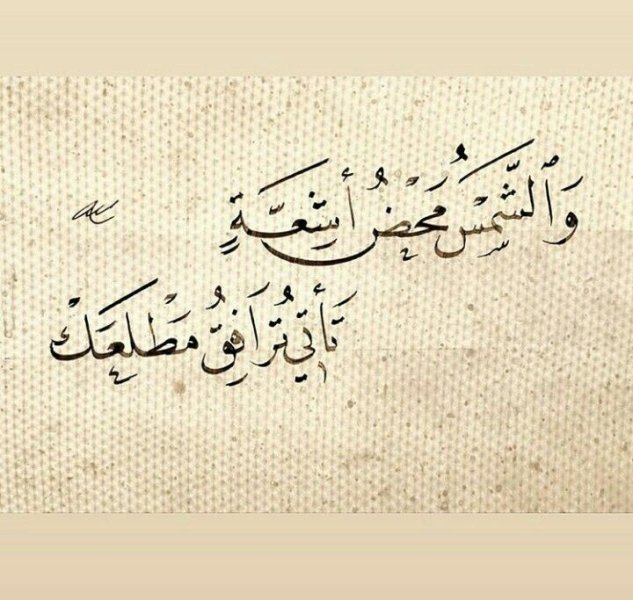 وَٱلشَّمْسُ مَحْضُ أَشِعَّةٍ
تَأْتِي تُرَافِقُ مَطْلَعَكْ